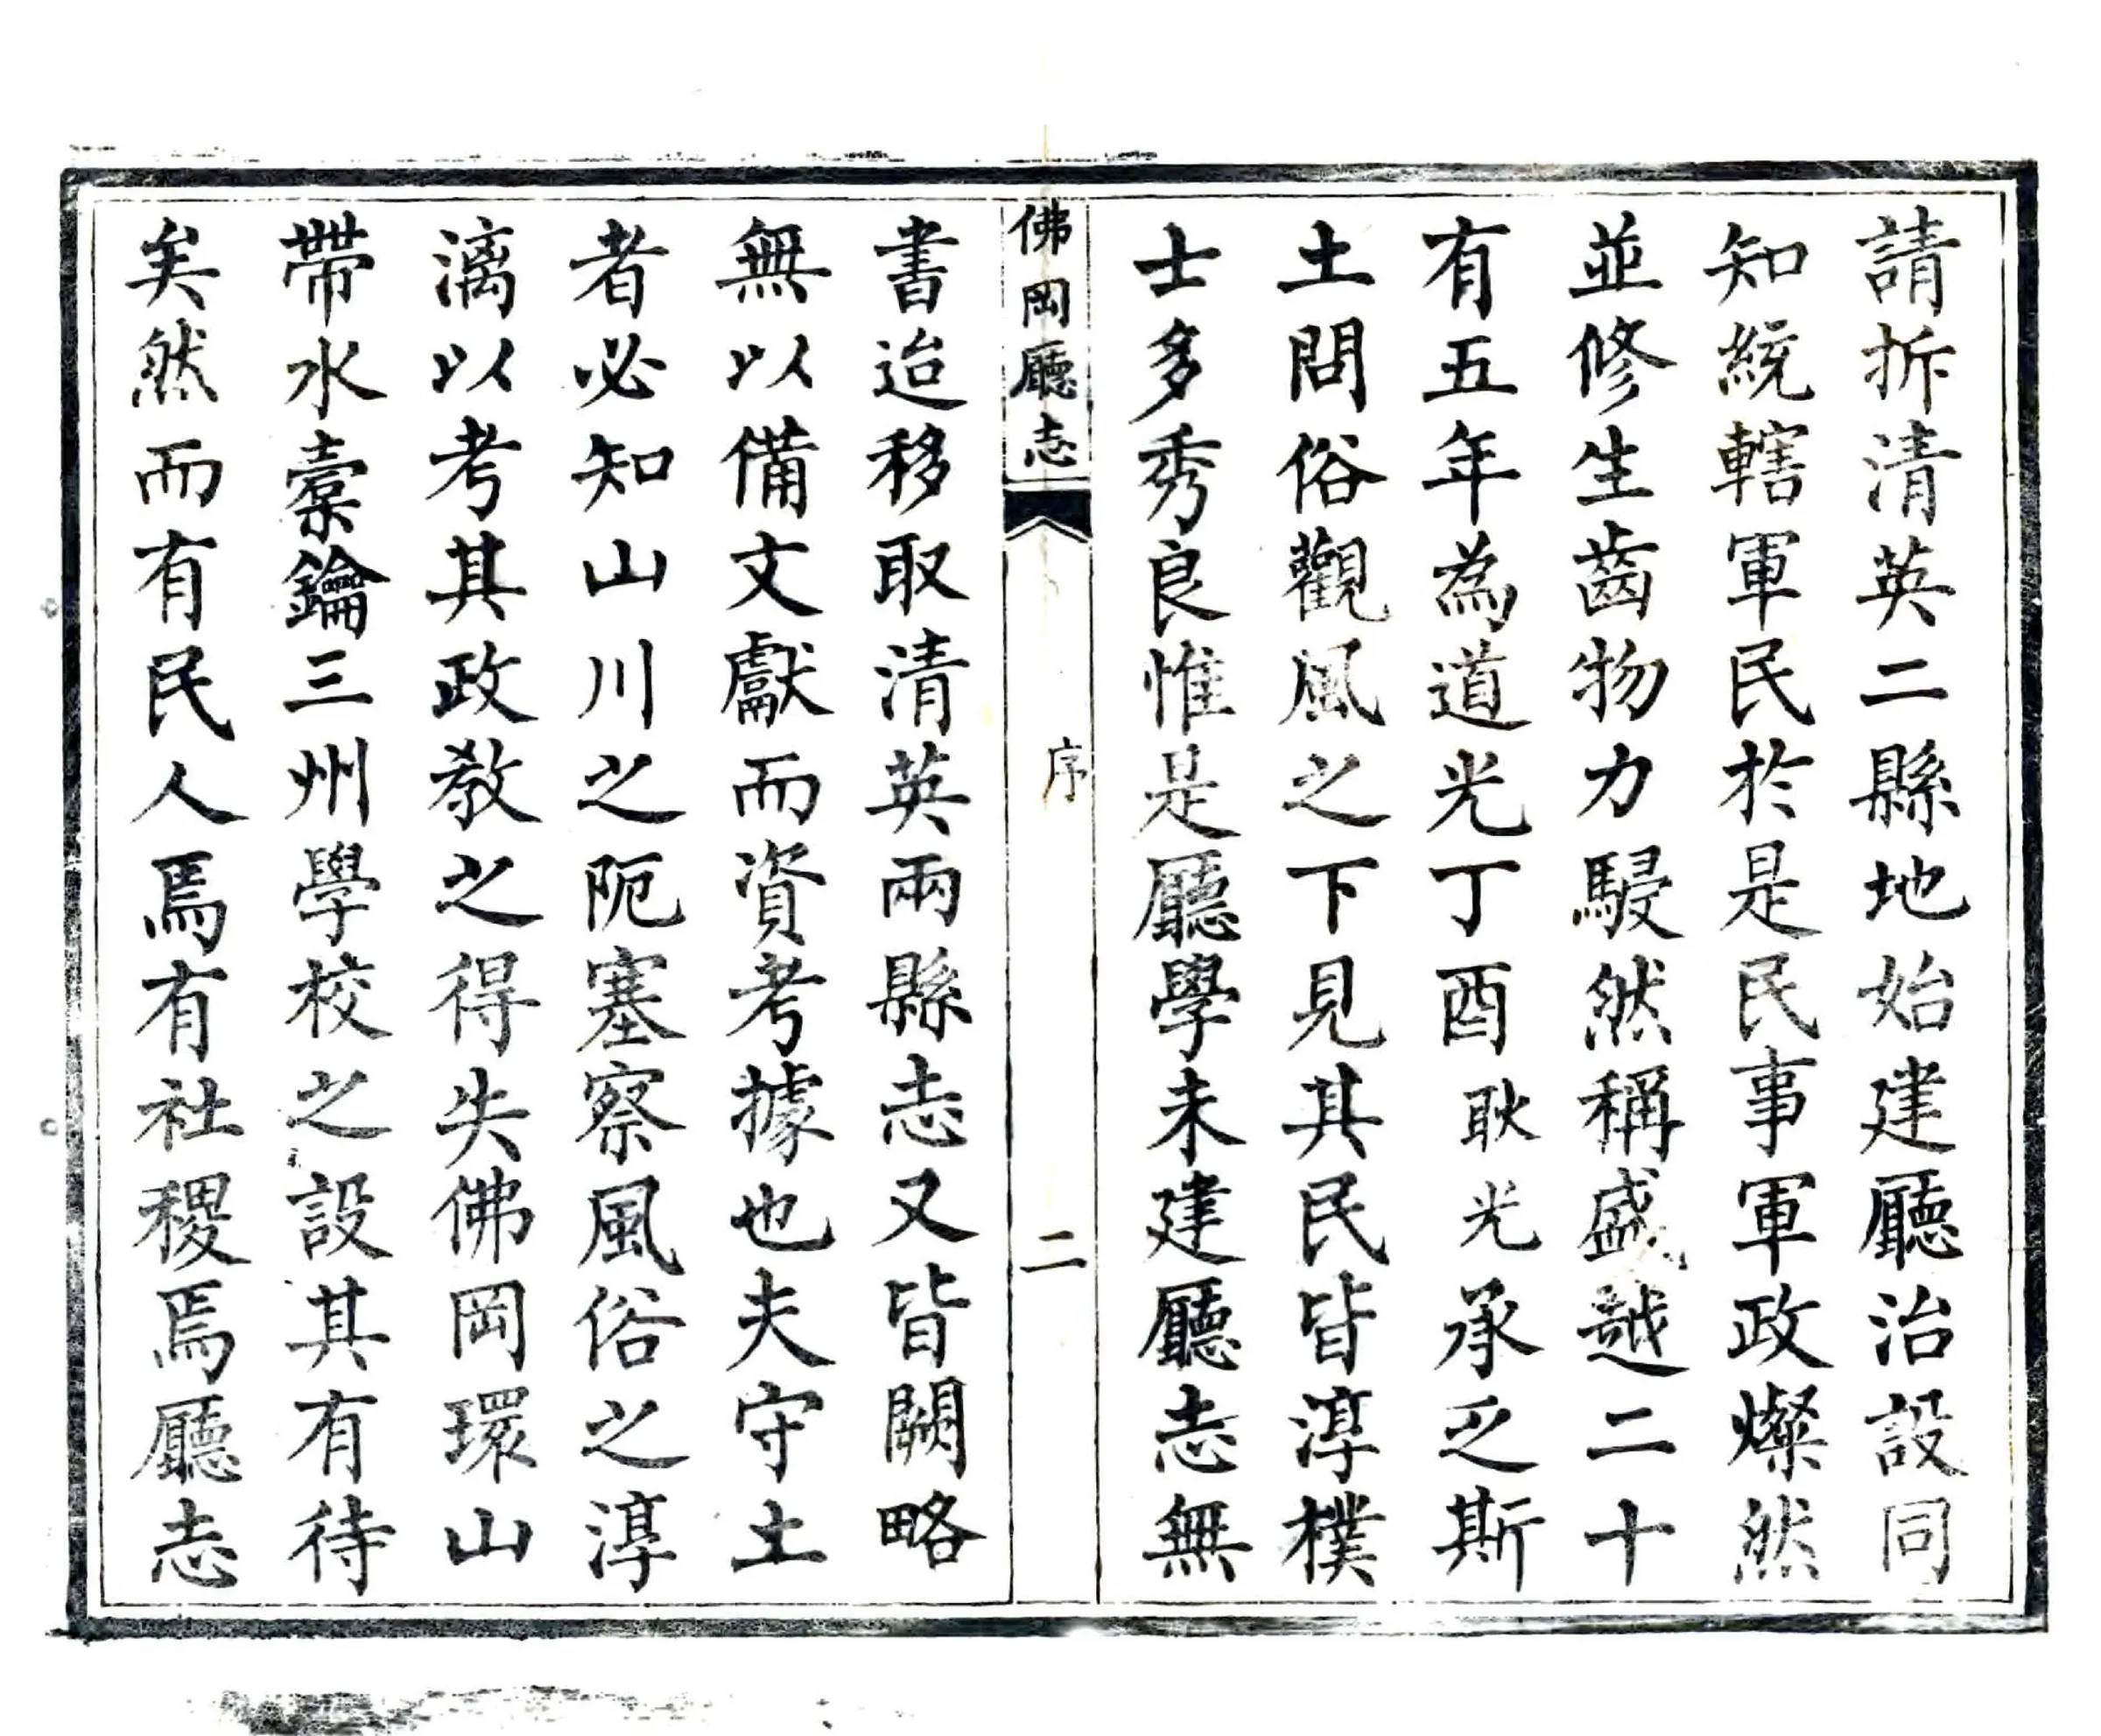 請拆清英二縣地始建廳治設同
知統轄軍民於是民事軍政燦然
並修生齒物力駸然稱盛越二十
有五年為道光丁酉耿光承乏斯
土問俗觀風之下見其民皆淳樸
士多秀良惟是廳學未建廳志無
佛岡廳志 序 二
書迨移取清英兩縣志又皆闕略
無以備文獻而資考據也夫守土
者必知山川之阨塞察風俗之淳
漓以考其政教之得失佛岡環山
帶水橐鑰三州學校之設其有待
矣然而有民人焉有社稷焉廳志